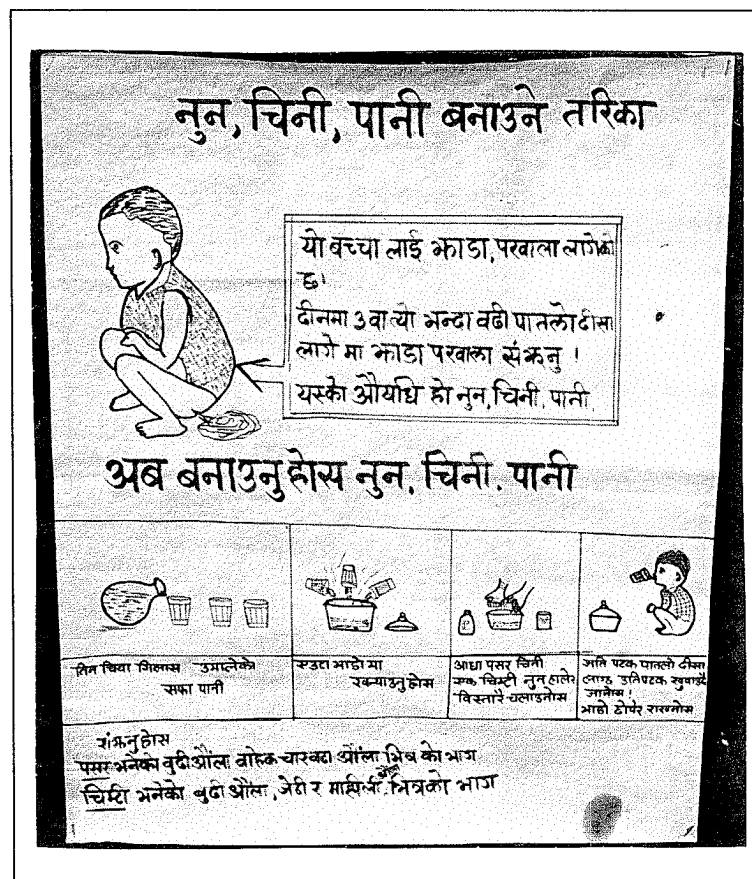 नुन, चिनी, पानी बनाउने तरिका
यो बच्चा लाई झाडा, पखाला लागेको
छ।
दीनमा ३ वा त्यो भन्दा बढी पातलो दीसा
लागे मा झाडा पखाला संझनु ।
यस्को औषधि हो नुन, चिनी, पानी
अब बनाउनुहोस नुन, चिनी, पानी
तिन चिया गिलास उमालेको
सफा पानी
एउटा भाडो मा
रख्याउनुहोस
आधा पसर चिनी
एक चिम्टी नुन हालेर
बिस्तारै चलाउनोस
जति पटक पातलो दीसा
लाग्छ उतिपटक खुवाउदै
जानोस ।
भाडो टोपेर राख्नोस
संझनुहोस
पसर भनेको बुढी औंला बाहेक चारवटा औंला भित्र को भाग
चिम्टी भनेको बुढी औंला, जेठी र माहीली भित्रको भाग